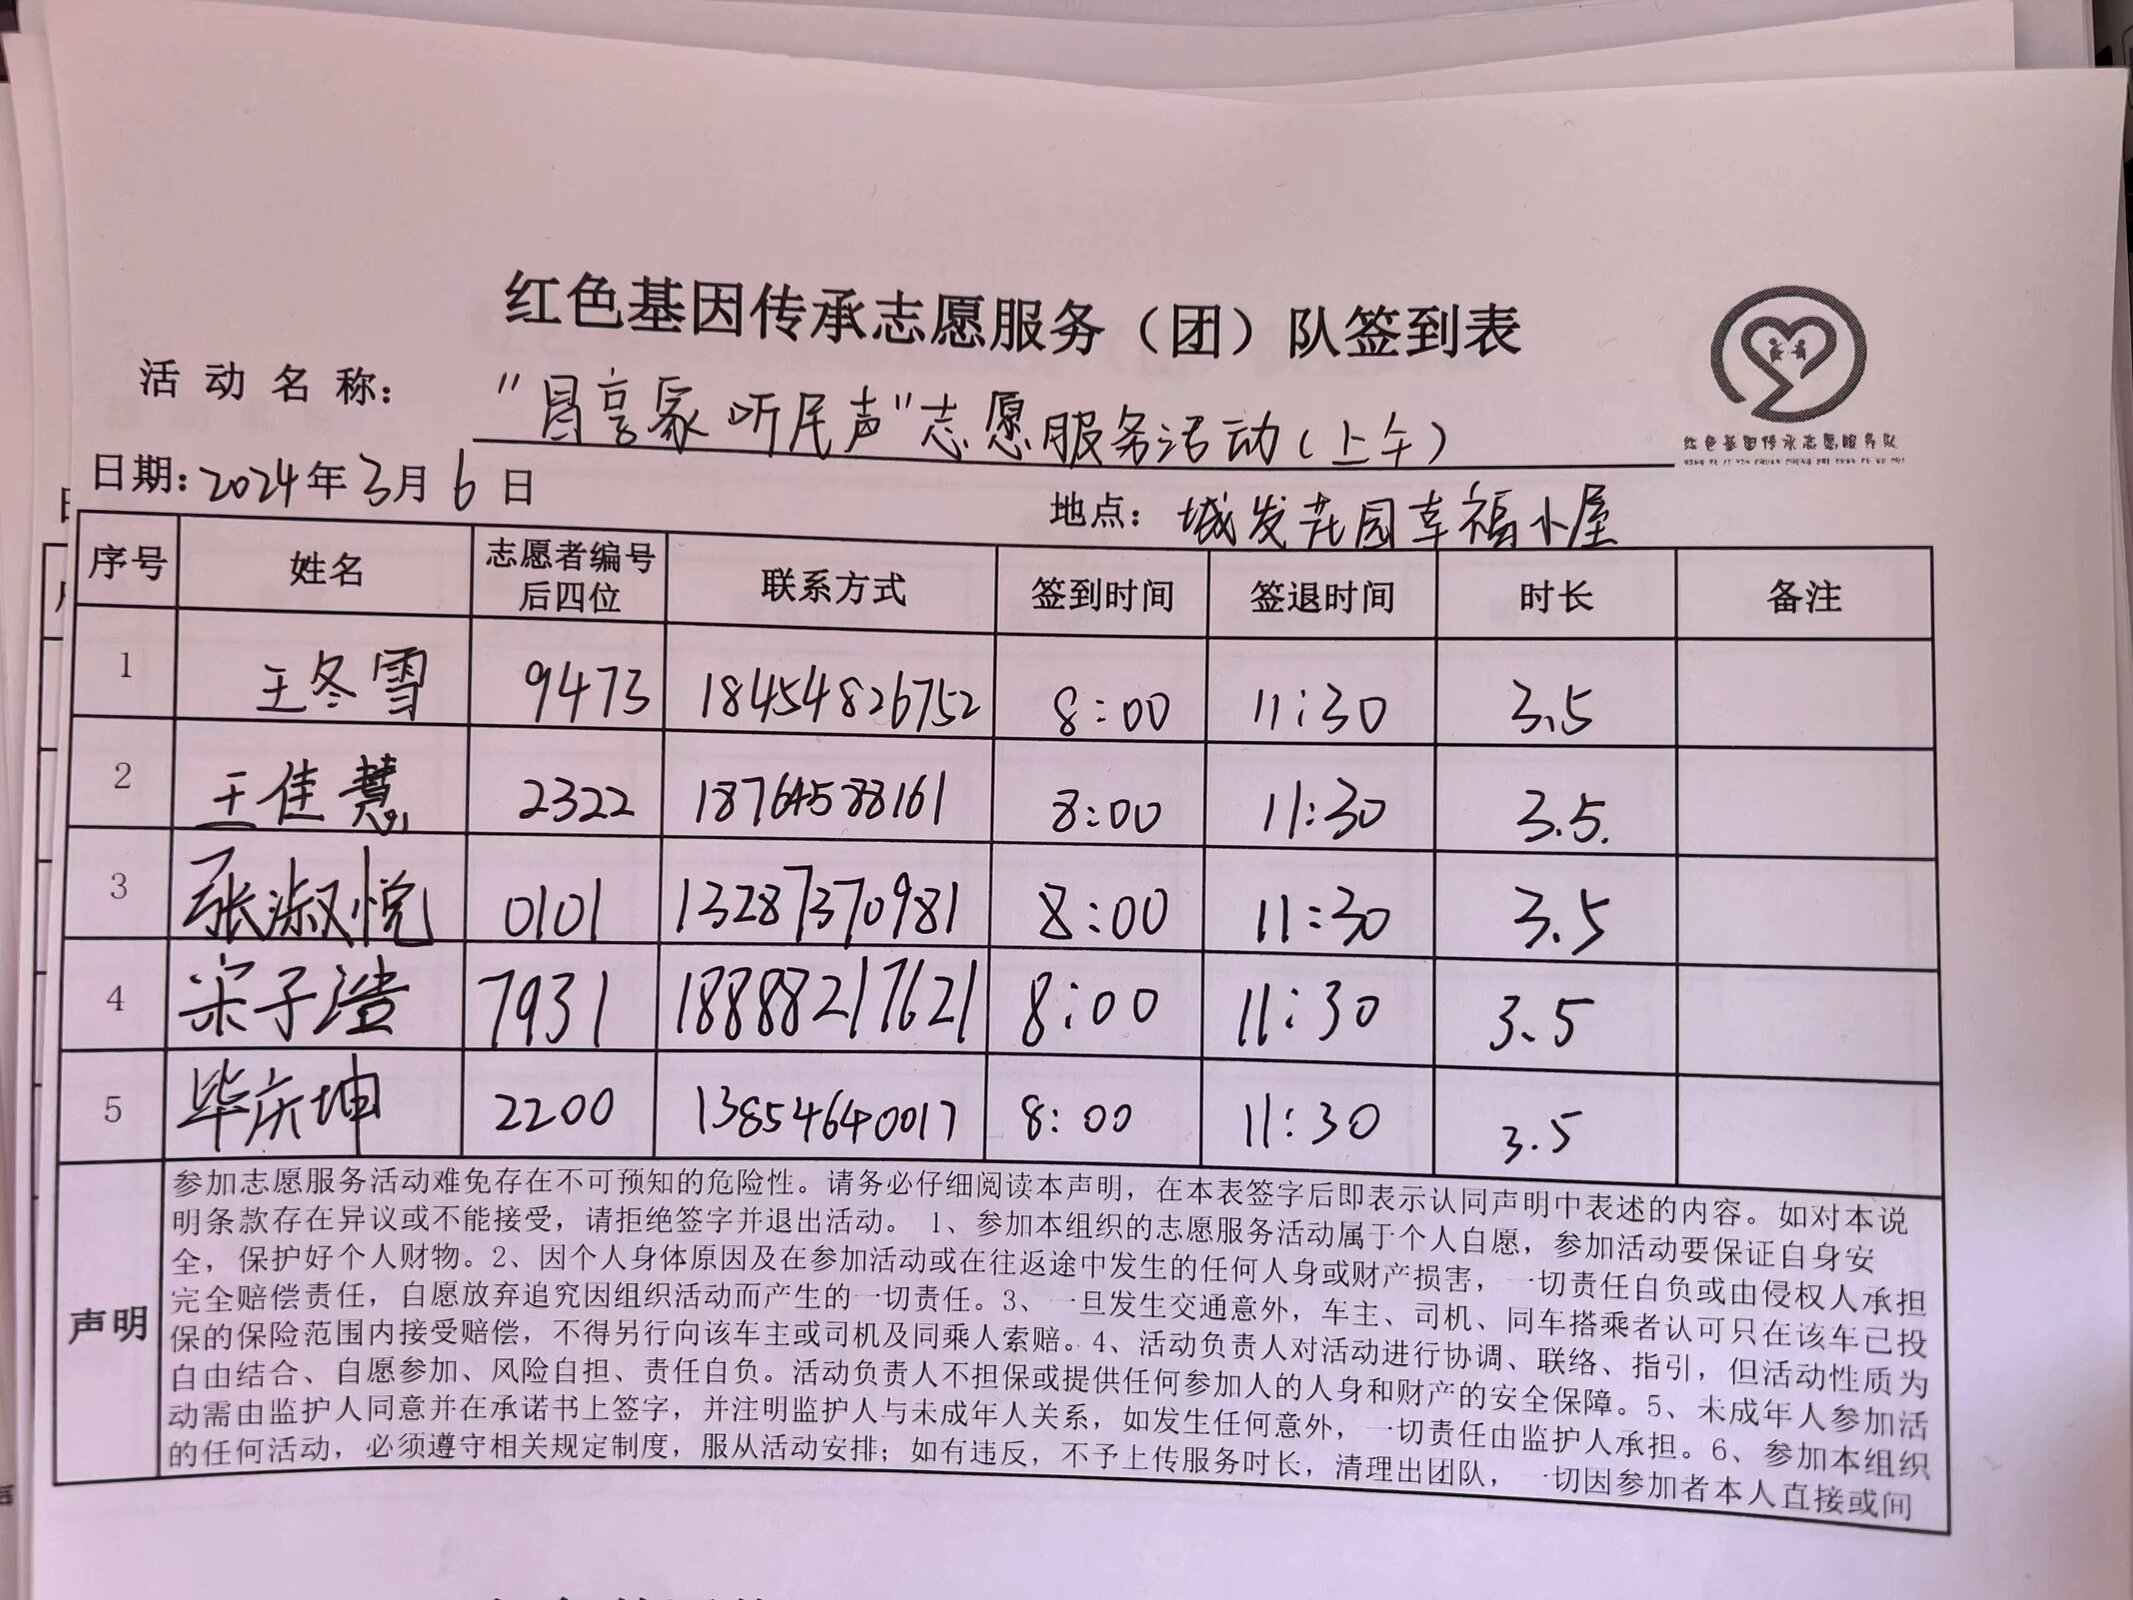 红色基因传承志愿服务（团）队签到表
活动名称： “昌享家 听民声”志愿服务活动(上午)
红色基因传承志愿服务队
日期: 2024年3月6日 地点: 城发花园幸福小屋
序号 姓名 志愿者编号后四位 联系方式 签到时间 签退时间 时长 备注
1 王冬雪 9473 18454826752 8:00 11:30 3.5
2 王佳慧 2322 18764588161 8:00 11:30 3.5.
3 张淑悦 0101 13287370981 8:00 11:30 3.5
4 宋子澅 7931 18888217621 8:00 11:30 3.5
5 毕庆坤 2200 13854640017 8:00 11:30 3.5
声明
参加志愿服务活动难免存在不可预知的危险性。请务必仔细阅读本声明，在本表签字后即表示认同声明中表述的内容。如对本说
明条款存在异议或不能接受，请拒绝签字并退出活动。 1、参加本组织的志愿服务活动属于个人自愿，参加活动要保证自身安
全，保护好个人财物。2、因个人身体原因及在参加活动或在往返途中发生的任何人身或财产损害，一切责任自负或由侵权人承担
完全赔偿责任，自愿放弃追究因组织活动而产生的一切责任。3、一旦发生交通意外，车主、司机、同车搭乘者认可只在该车已投
保的保险范围内接受赔偿，不得另行向该车主或司机及同乘人索赔。4、活动负责人对活动进行协调、联络、指引，但活动性质为
自由结合、自愿参加、风险自担、责任自负。活动负责人不担保或提供任何参加人的人身和财产的安全保障。5、未成年人参加活
动需由监护人同意并在承诺书上签字，并注明监护人与未成年人关系，如发生任何意外，一切责任由监护人承担。6、参加本组织
的任何活动，必须遵守相关规定制度，服从活动安排；如有违反，不予上传服务时长，清理出团队，一切因参加者本人直接或间